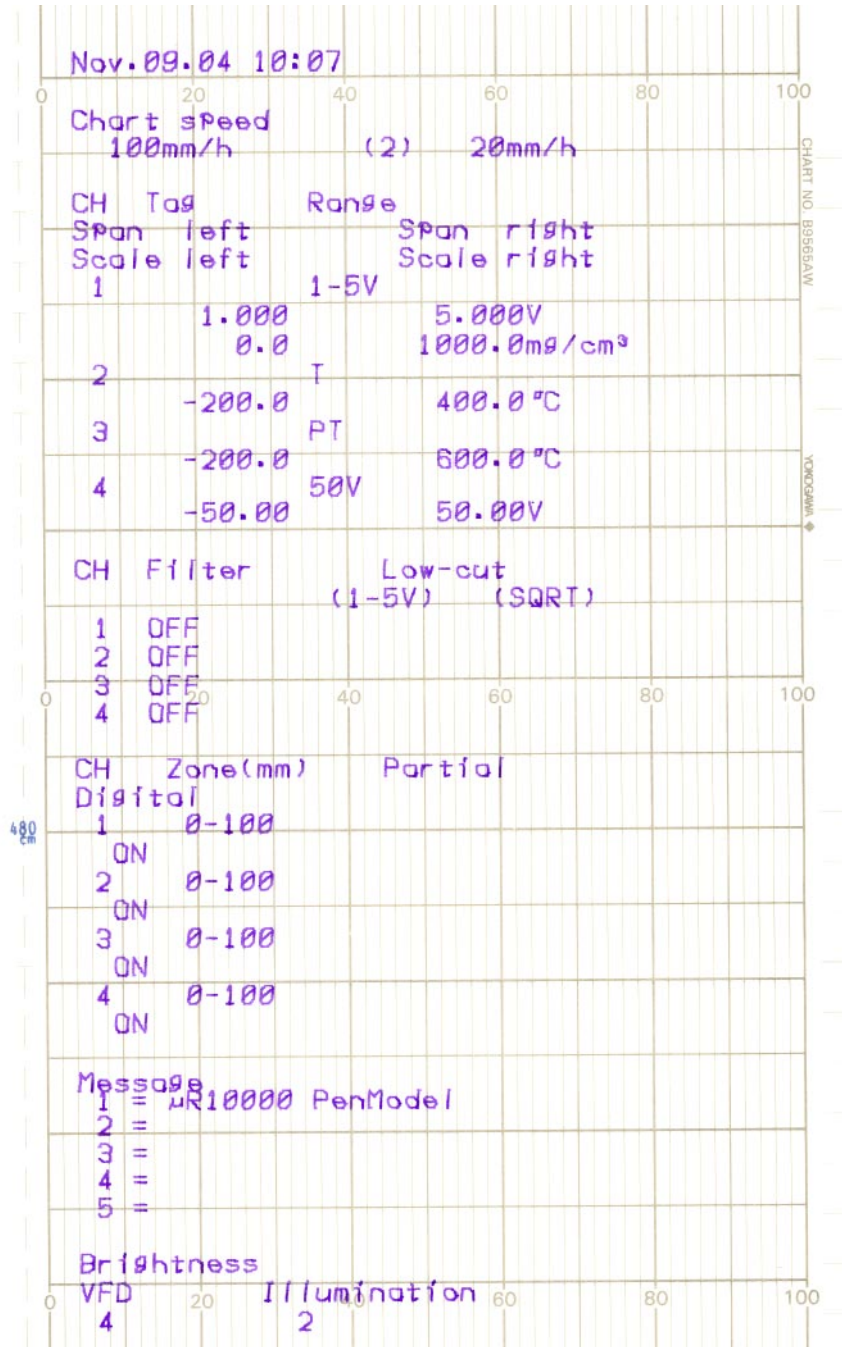 Nov.09.04 10:07
0 20 40 60 80 100
Chart speed
100mm/h (2) 20mm/h
CH Tag Range
Span left Span right
Scale left Scale right
1 1-5V
1.000 5.000V
0.0 1000.0mg/cm³
2 T
-200.0 400.0°C
3 PT
-200.0 600.0°C
4 50V
-50.00 50.00V
CHART NO. B9565AW
YOKOGAWA ◆
CH Filter Low-cut
(1-5V) (SQRT)
1 OFF
2 OFF
3 OFF
0 20 40 60 80 100
4 OFF
CH Zone(mm) Partial
Digital
480 cm
1 0-100
ON
2 0-100
ON
3 0-100
ON
4 0-100
ON
Message
1 = µR10000 PenModel
2 =
3 =
4 =
5 =
Brightness
VFD Illumination
0 20 40 60 80 100
4 2